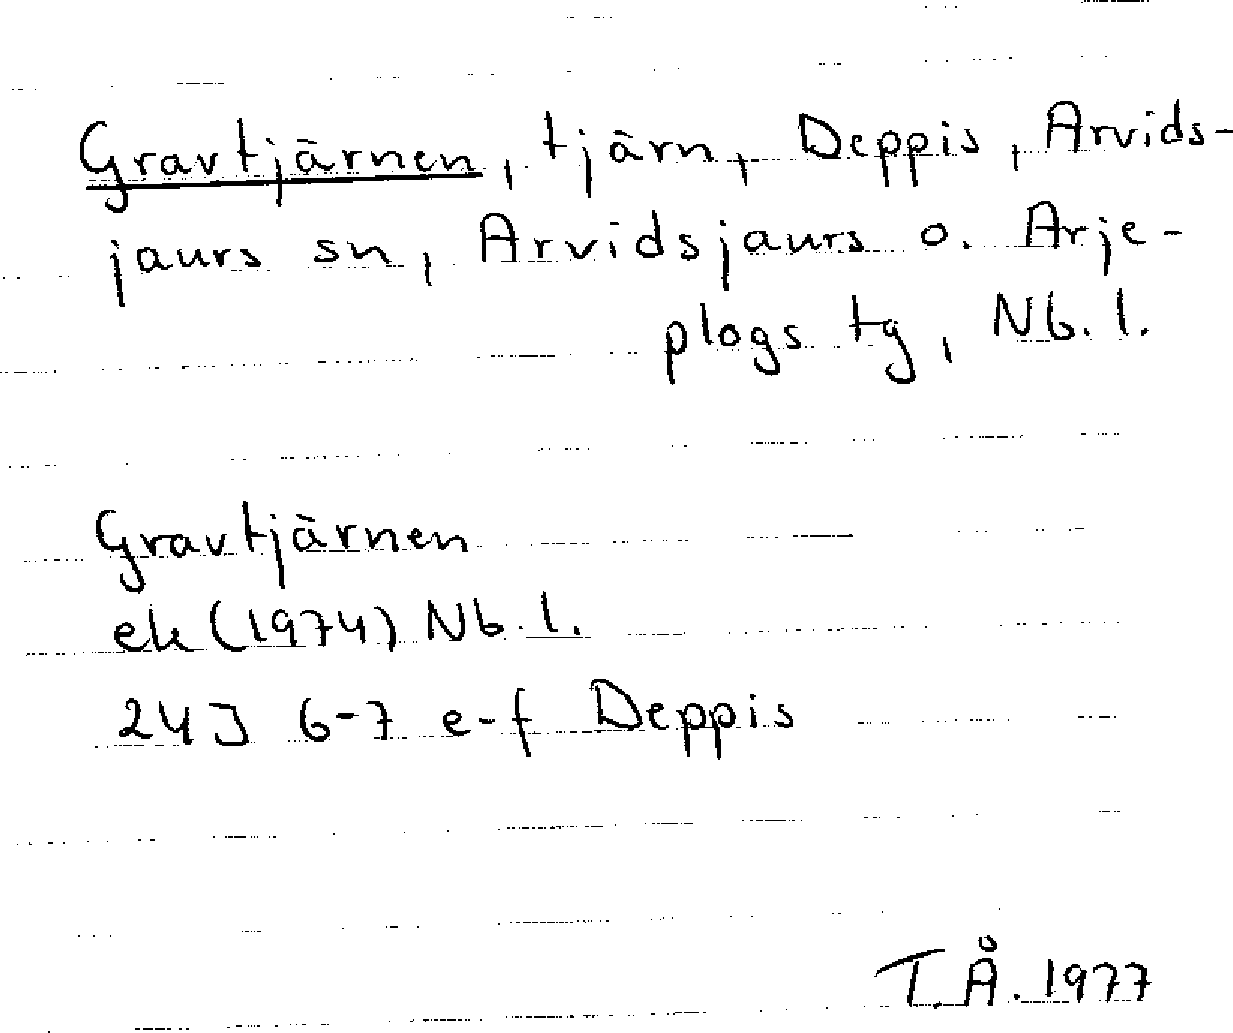 Gravtjärnen, tjärn, Deppis, Arvids-
jaurs sn, Arvidsjaurs o. Arje-
plogs tg, Nb. l.
Gravtjärnen
ek (1974) Nb. l.
24J 6-7 e-f Deppis
T.Å. 1977